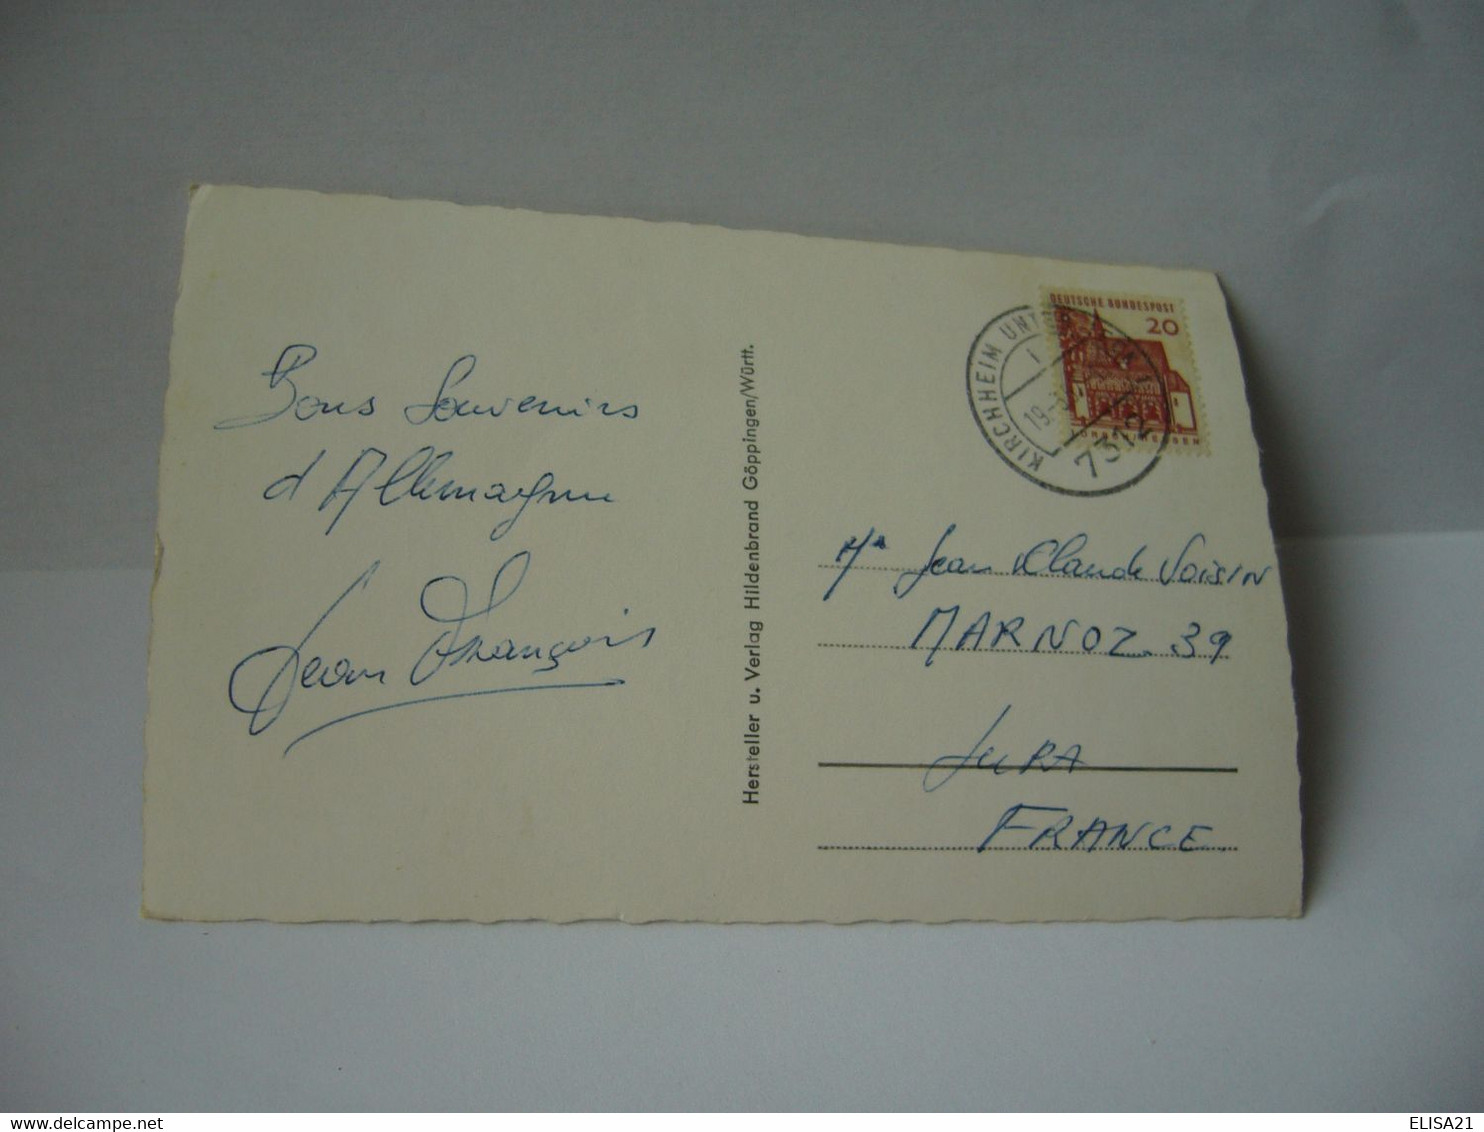 Bons Souvenirs
d'Allemagne
Jean François
Hersteller u. Verlag Hildenbrand Göppingen/Württ.
DEUTSCHE BUNDESPOST
20
KIRCHHEIM UNTER
7312
Mr Jean Claude Voisin
MARNOZ. 39
JURA
FRANCE
delcampe.net
ELISA21